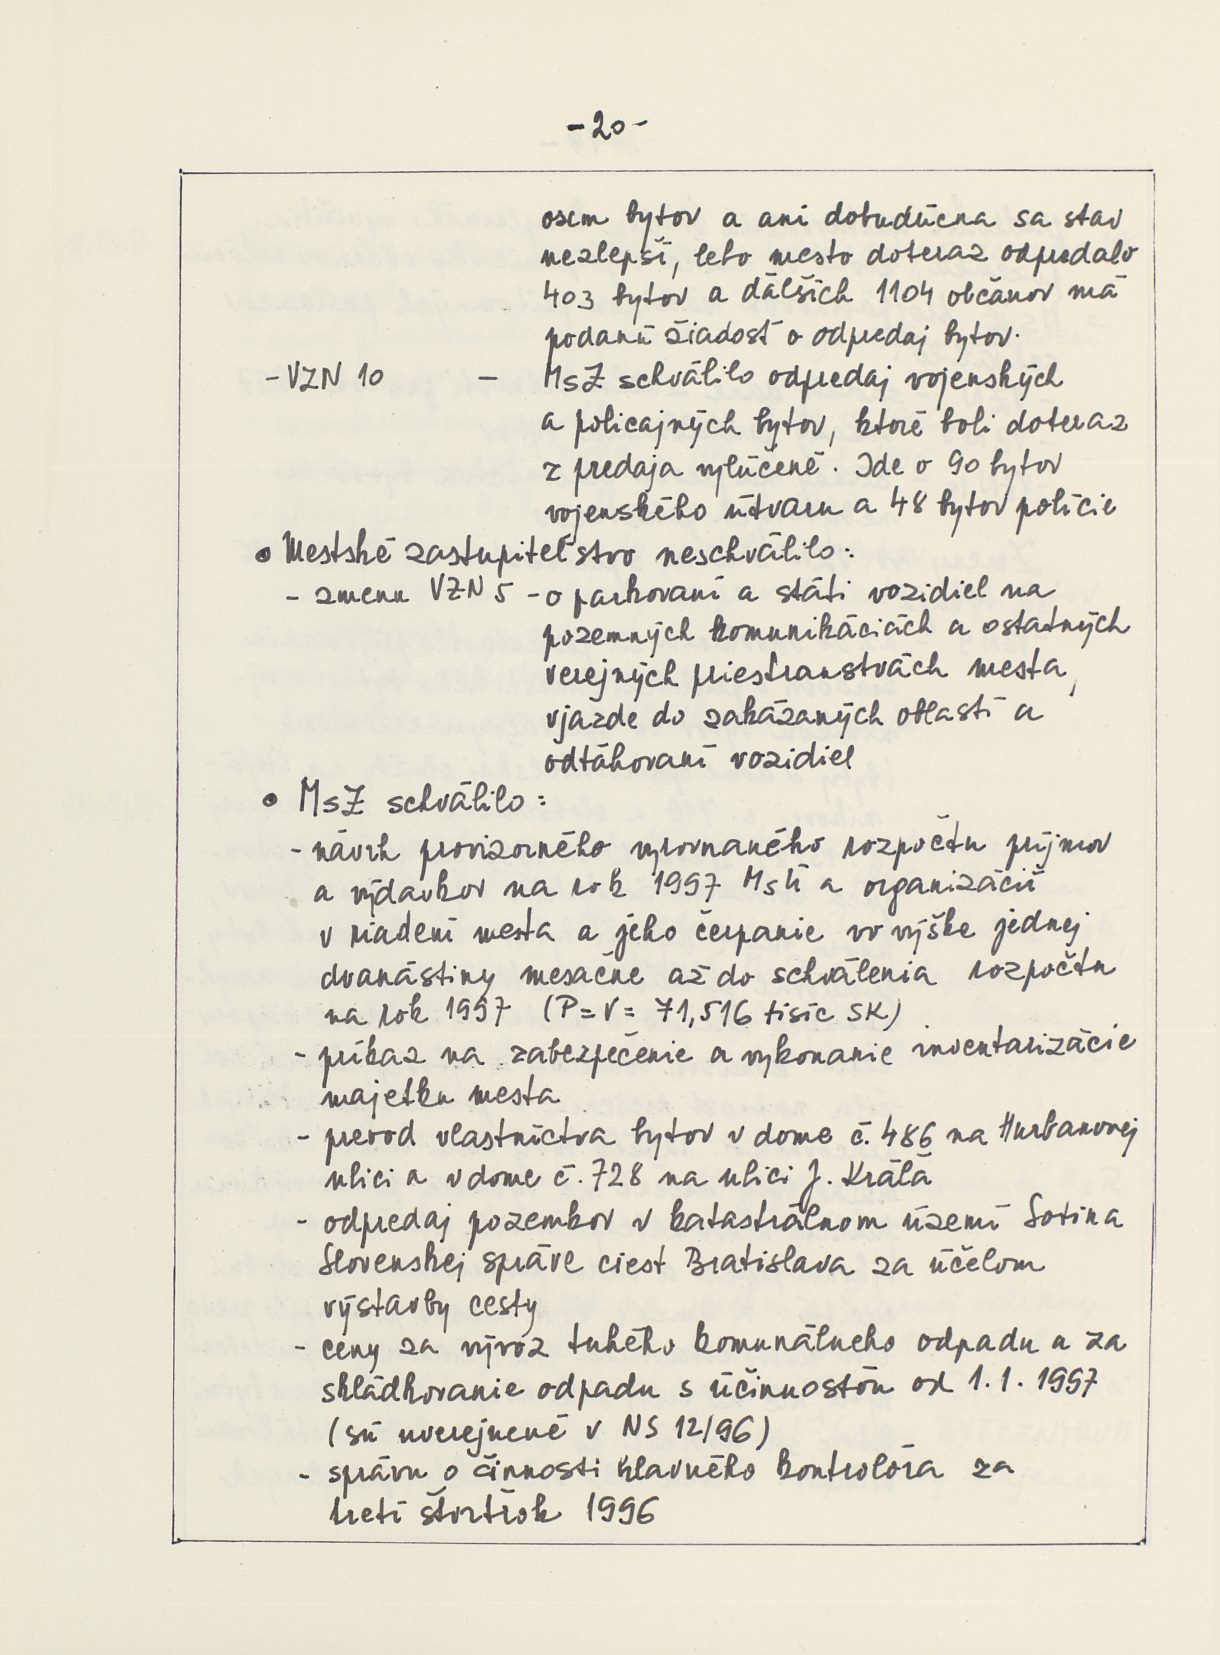 -20-
osem bytov a ani dobudúcna sa stav
nezlepší, lebo mesto doteraz odpredalo
403 bytov a ďalších 1104 občanov má
podanú žiadosť o odpredaj bytov.
- VZN 10 - MsZ schválilo odpredaj vojenských
a policajných bytov, ktoré boli doteraz
z predaja vylúčené. Ide o 90 bytov
vojenského útvaru a 48 bytov polície
• Mestské zastupiteľstvo neschválilo:
- zmenu VZN 5 - o parkovaní a státí vozidiel na
pozemných komunikáciách a ostatných
verejných priestranstvách mesta,
vjazde do zakázaných oblastí a
odťahovaní vozidiel
• MsZ schválilo:
- návrh provizorného vyrovnaného rozpočtu príjmov
a výdavkov na rok 1997 MsÚ a organizácií
v riadení mesta a jeho čerpanie vo výške jednej
dvanástiny mesačne až do schválenia rozpočtu
na rok 1997 (P = V = 71,516 tisíc SK)
- príkaz na zabezpečenie a vykonanie inventarizácie
majetku mesta
- prevod vlastníctva bytov v dome č. 486 na Hurbanovej
ulici a v dome č. 728 na ulici J. Kráľa
- odpredaj pozemkov v katastrálnom území Sotina
Slovenskej správe ciest Bratislava za účelom
výstavby cesty
- ceny za vývoz tuhého komunálneho odpadu a za
skládkovanie odpadu s účinnosťou od 1.1. 1997
(sú uverejnené v NS 12/96)
- správu o činnosti hlavného kontrolóra za
tretí štvrťrok 1996